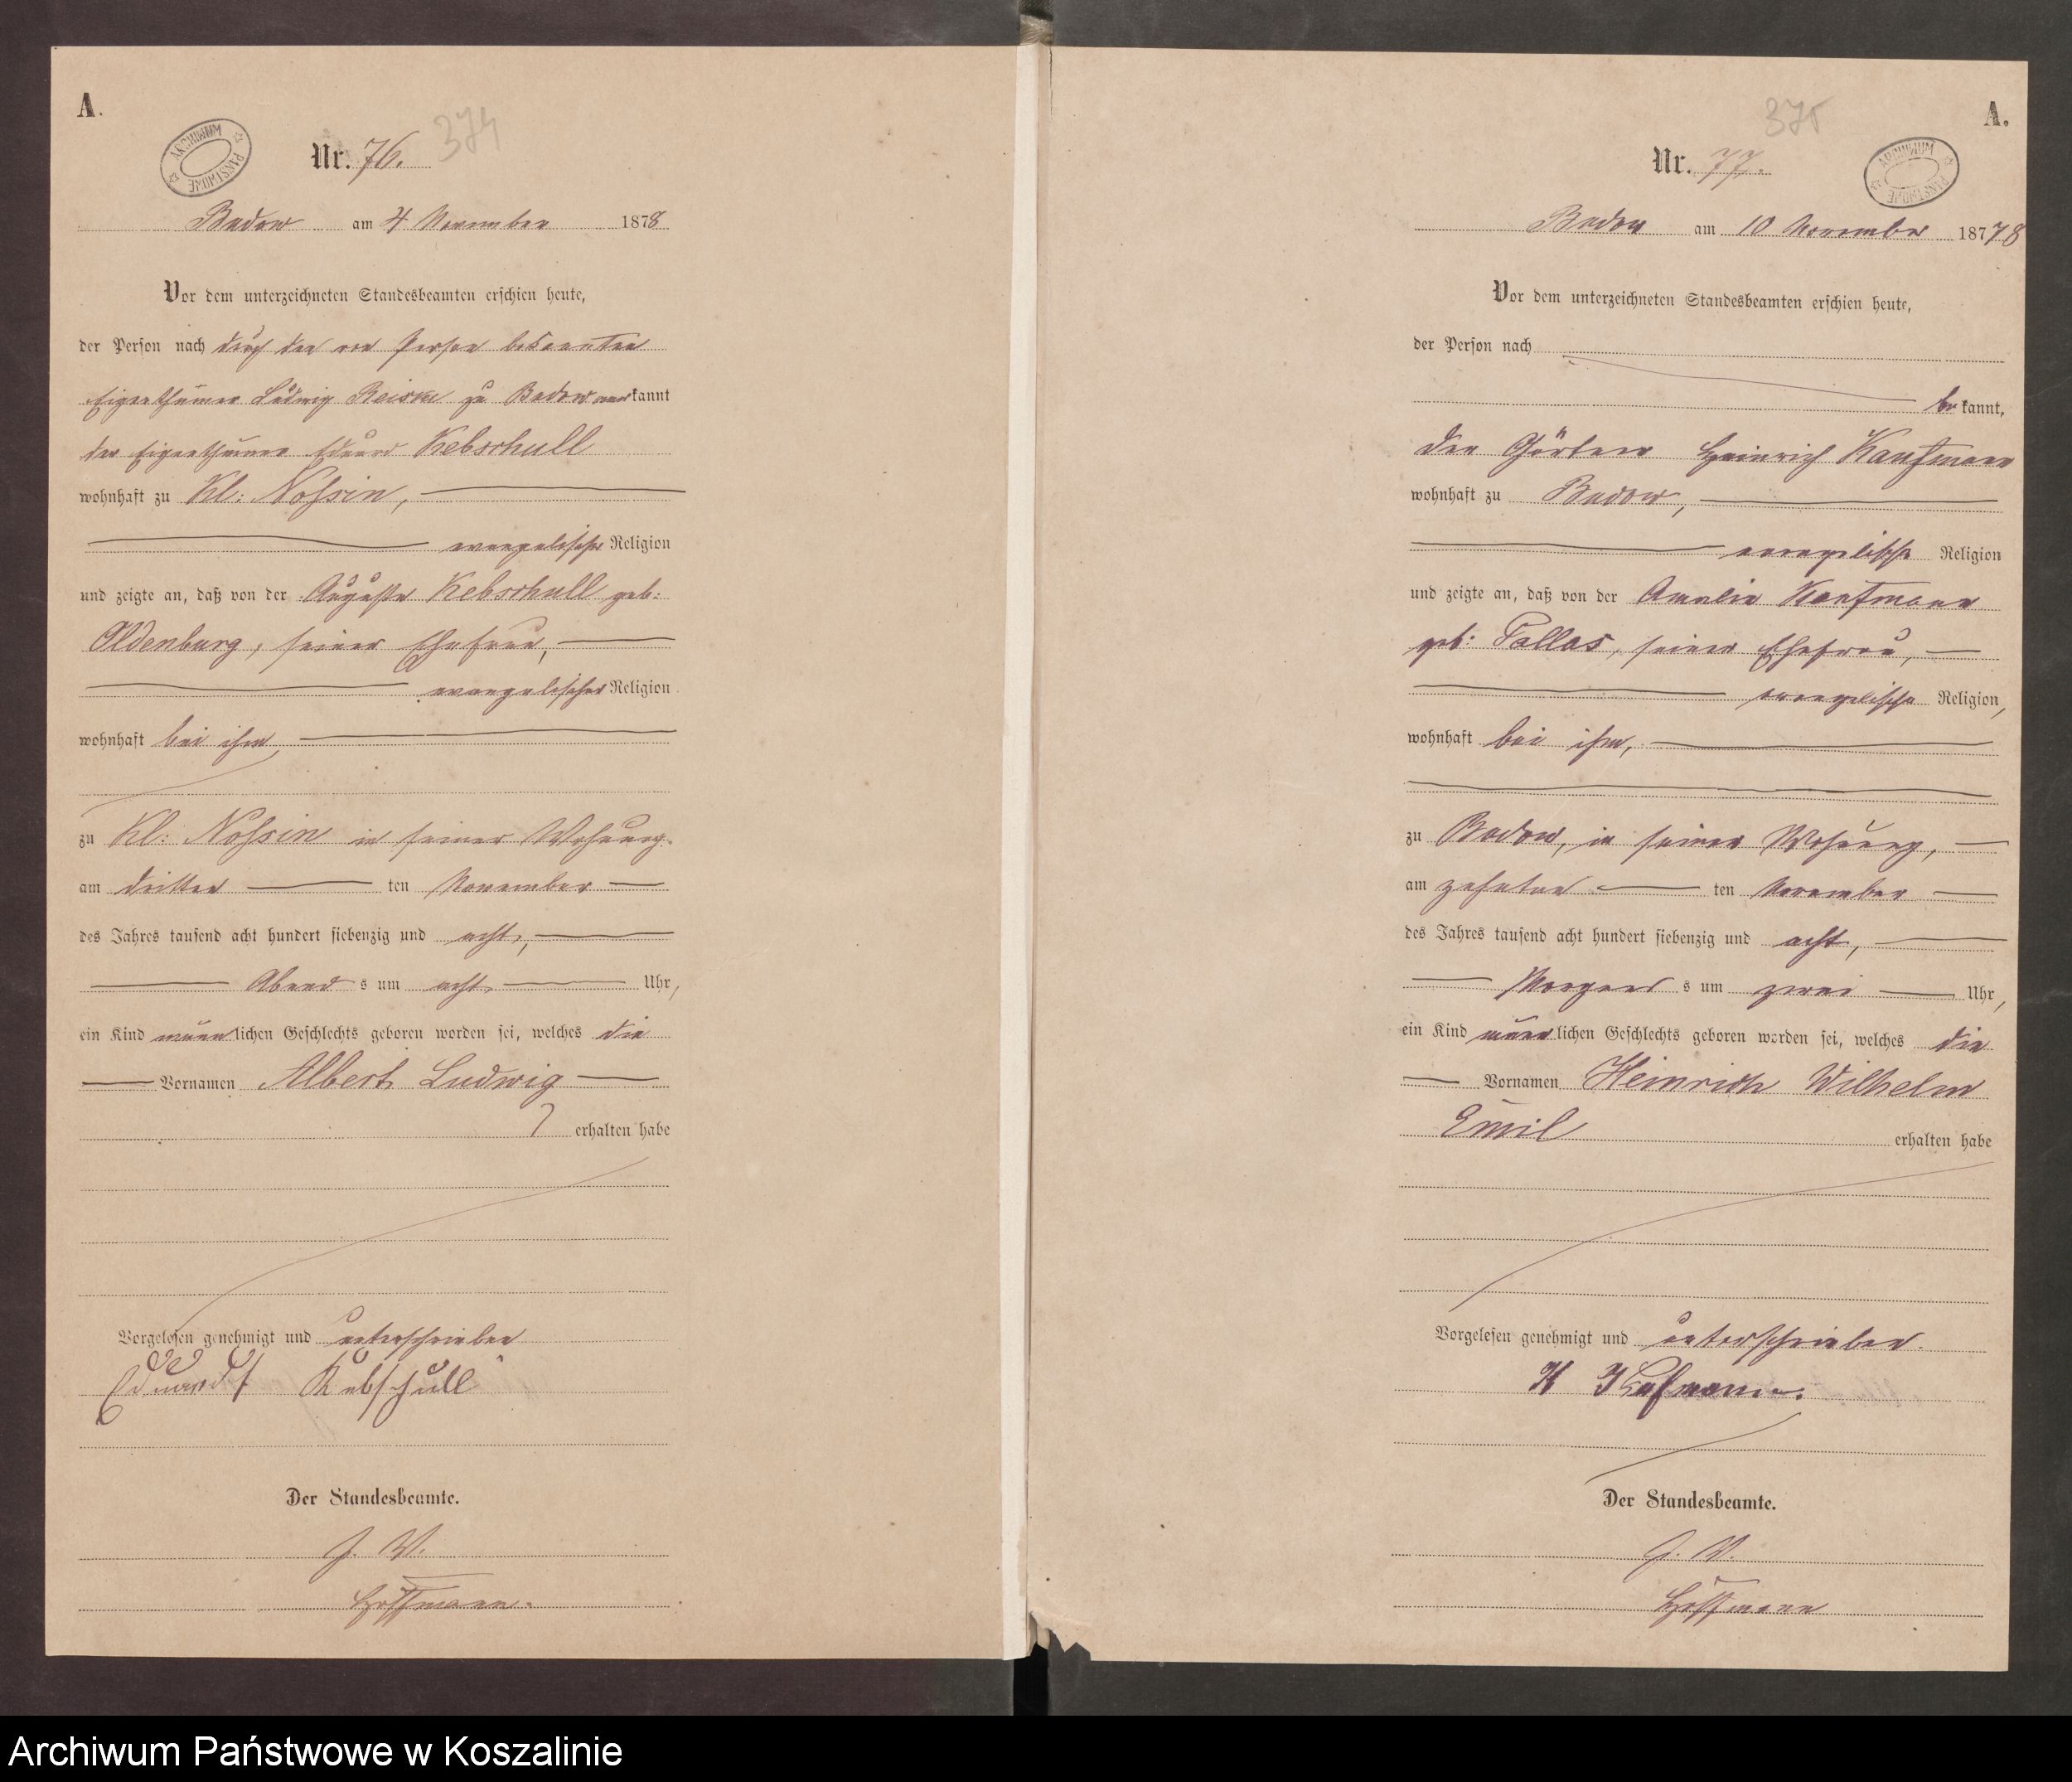 A.
374
ARCHIWUM PAŃSTWOWE
Nr. 76.
Budow am 4 November 1878
Vor dem unterzeichneten Standesbeamten erschien heute,
der Person nach durch den von Person bekannten
Eigenthümer Ludwig Reiske zu Budow anerkannt
der Eigenthümer Eduard Kebschull
wohnhaft zu Kl: Nossin,
evangelischer Religion
und zeigte an, daß von der Auguste Kebschull geb:
Oldenburg, seiner Ehefrau,
evangelischer Religion
wohnhaft bei ihm,
zu Kl: Nossin in seiner Wohnung
am dritten ten November
des Jahres tausend acht hundert siebenzig und acht,
Abend s um acht Uhr,
ein Kind männlichen Geschlechts geboren worden sei, welches die
Vornamen Albert Ludwig
erhalten habe
Vorgelesen genehmigt und unterschrieben
Eduard Kebschull
Der Standesbeamte.
J. V.
Hoffmann.
375
A.
Nr. 77.
ARCHIWUM PAŃSTWOWE
Budow am 10 November 18778
Vor dem unterzeichneten Standesbeamten erschien heute,
der Person nach
be kannt,
der Gärtner Heinrich Kaufmann
wohnhaft zu Budow,
evangelische Religion
und zeigte an, daß von der Amalie Kaufmann
geb: Pallas, seiner Ehefrau,
evangelische Religion,
wohnhaft bei ihm,
zu Budow, in seiner Wohnung,
am zehnten ten November
des Jahres tausend acht hundert siebenzig und acht,
Morgens s um zwei Uhr,
ein Kind männlichen Geschlechts geboren worden sei, welches die
Vornamen Heinrich Wilhelm
Emil erhalten habe
Vorgelesen genehmigt und unterschrieben.
H Kaufmann.
Der Standesbeamte.
J. V.
Hoffmann
Archiwum Państwowe w Koszalinie